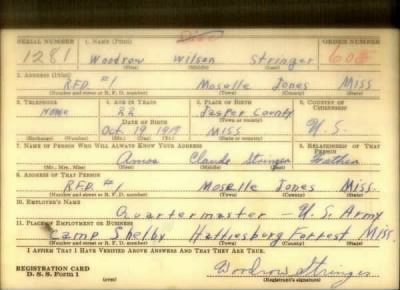 SERIAL NUMBER 1. NAME (Print) ORDER NUMBER
1281 Woodrow Wilson Stringer 608
(First) (Middle) (Last)
2. ADDRESS (Print)
R.F.D. #1 Moselle Jones Miss
(Number and street or R. F. D. number) (Town) (County) (State)
3. TELEPHONE 4. AGE IN YEARS 5. PLACE OF BIRTH 6. COUNTRY OF CITIZENSHIP
None 22 Jasper County
DATE OF BIRTH (Town or county)
Oct 19 1919 Miss U.S.
(Exchange) (Number) (Mo.) (Day) (Yr.) (State or country)
7. NAME OF PERSON WHO WILL ALWAYS KNOW YOUR ADDRESS 8. RELATIONSHIP OF THAT PERSON
Claude Stringer Father
(Mr., Mrs., Miss) (First) (Middle) (Last)
9. ADDRESS OF THAT PERSON
R.F.D. #1 Moselle Jones Miss.
(Number and street or R. F. D. number) (Town) (County) (State)
10. EMPLOYER'S NAME
Quartermaster - U.S. Army
11. PLACE OF EMPLOYMENT OR BUSINESS
Camp Shelby Hattiesburg Forrest Miss.
(Number and street or R. F. D. number) (Town) (County) (State)
I AFFIRM THAT I HAVE VERIFIED ABOVE ANSWERS AND THAT THEY ARE TRUE.
REGISTRATION CARD
D. S. S. Form 1 Woodrow Stringer
(Registrant's signature)